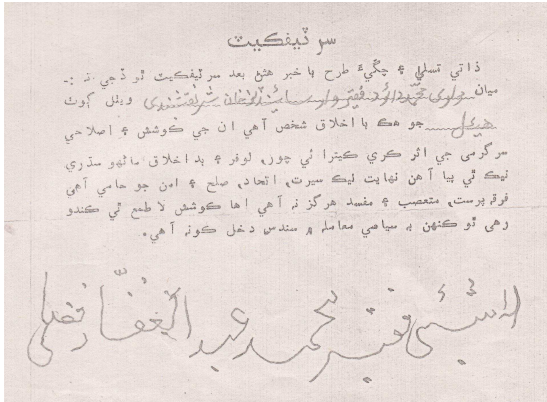 سرٽيفڪيٽ
ذاتي تسلي ۽ چڱيءَ طرح با خبر هئڻ بعد سرٽيفڪيٽ ٿو ڏجي ته :-
ميان مولوي محمد دائود فقير ويٺل ڳوٺ
جو هڪ با اخلاق شخص آهي ان جي ڪوشش ۽ اصلاحي
سرگرمي جي اثر ڪري ڪيترا ئي چور، لوفر ۽ بد اخلاق ماڻهو سڌري
نيڪ ٿي پيا آهن نهايت نيڪ سيرت، اتحاد، صلح ۽ امن جو حامي آهي
فرقہ پرست، متعصب ۽ مفسد هرگز نہ آهي اها ڪوشش لا طمع ٿي ڪندو
رهي ٿو ڪنهن بہ سياسي معاملہ ۾ سندس دخل ڪونہ آهي.
فقير محمد عبد الغفار فضلي